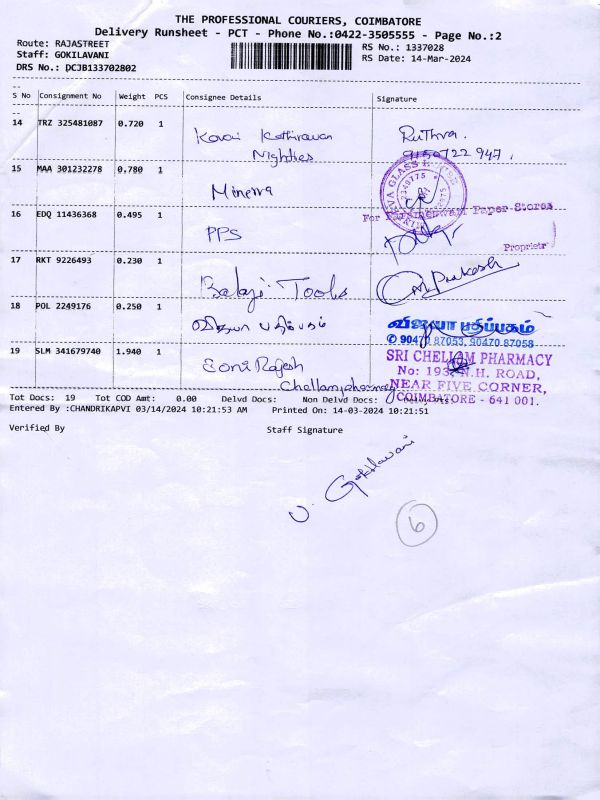 THE PROFESSIONAL COURIERS, COIMBATORE
Delivery Runsheet - PCT - Phone No.:0422-3505555 - Page No.:2
Route: RAJASTREET
RS No.: 1337028
Staff: GOKILAVANI
RS Date: 14-Mar-2024
DRS No.: DCJB133702802
S No Consignment No Weight PCS Consignee Details Signature
14 TRZ 325481087 0.720 1 Kovai Kathiravan Ruthra.
Nighties 9150722 947.
15 MAA 301232278 0.780 1 Minerva
16 EDQ 11436368 0.495 1 PPS
For Paper Stores
Proprietr
17 RKT 9226493 0.230 1 Balaji Tools
Prakash
18 POL 2249176 0.250 1 விஜயா பதிப்பகம் விஜயா பதிப்பகம்
90470 87053, 90470 87058
19 SLM 341679740 1.940 1 Soni Rajesh SRI CHELLAM PHARMACY
No: 193, N.H. ROAD,
Chellampharmacy NEAR FIVE CORNER,
COIMBATORE - 641 001.
Tot Docs: 19 Tot COD Amt: 0.00 Delvd Docs: Non Delvd Docs:
Entered By :CHANDRIKAPVI 03/14/2024 10:21:53 AM Printed On: 14-03-2024 10:21:51
Verified By Staff Signature
V. Gokilavani
6